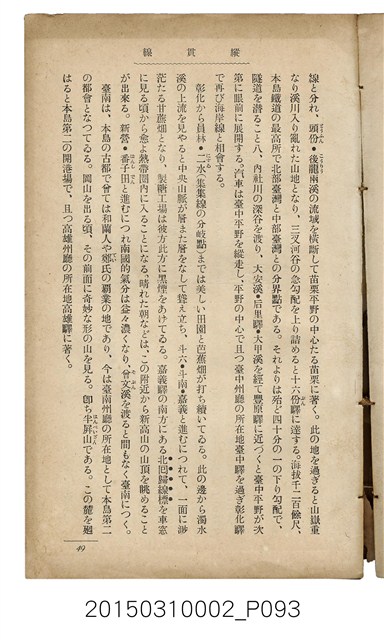 線貫縱
線と分れ、頭份・後龍兩溪の流域を橫斷して苗栗平野の中心たる苗栗に著く。此の地を過ぎると山嶽重
なり溪川入り亂れた山地となり、三叉河谷の急勾配を上り詰めると十六份驛に達する。海拔千三百餘尺、
本島鐵道の最高所で北部臺灣と中部臺灣との分界點である。それよりは殆ど四十分の一の下り勾配で、
隧道を潜ること八、內社川の深谷を渡り、大安溪・后里驛・大甲溪を經て豐原驛に近づくと臺中平野が次
第に眼前に展開する。汽車は臺中平野を縱走し、平野の中心で且つ臺中州廳の所在地臺中驛を過ぎ彰化驛
で再び海岸線と相會する。
彰化から員林・二水(集集線の分岐點)までは美しい田園と芭蕉畑が打ち續いてゐる。此の邊から濁水
溪の上流を見やると中央山脈が層また層をなして聳え立ち、斗六・斗南・嘉義と進むにつれて、一面に渺
茫たる甘蔗畑となり、製糖工場は彼方此方に黑煙をあげてゐる。嘉義驛の南方にある北回歸線標を車窓
に見る頃から愈よ熱帶圈內に入ることになる、晴れた朝などは、この附近から新高山の山頂を眺めること
が出來る。新營・番子田と進むにつれ南國的氣分は益々濃くなり、曾文溪を渡ると間もなく臺南につく。
臺南は、本島の古都で曾ては和蘭人や鄭氏の覇業の地であり、今は臺南州廳の所在地として本島第二
の都會となつてゐる。岡山を出る頃、その前面に奇妙な形の山を見る。卽ち半屛山である。この麓を廻
はると本島第二の開港場で、且つ高雄州廳の所在地高雄驛に著く。
49
20150310002_P093